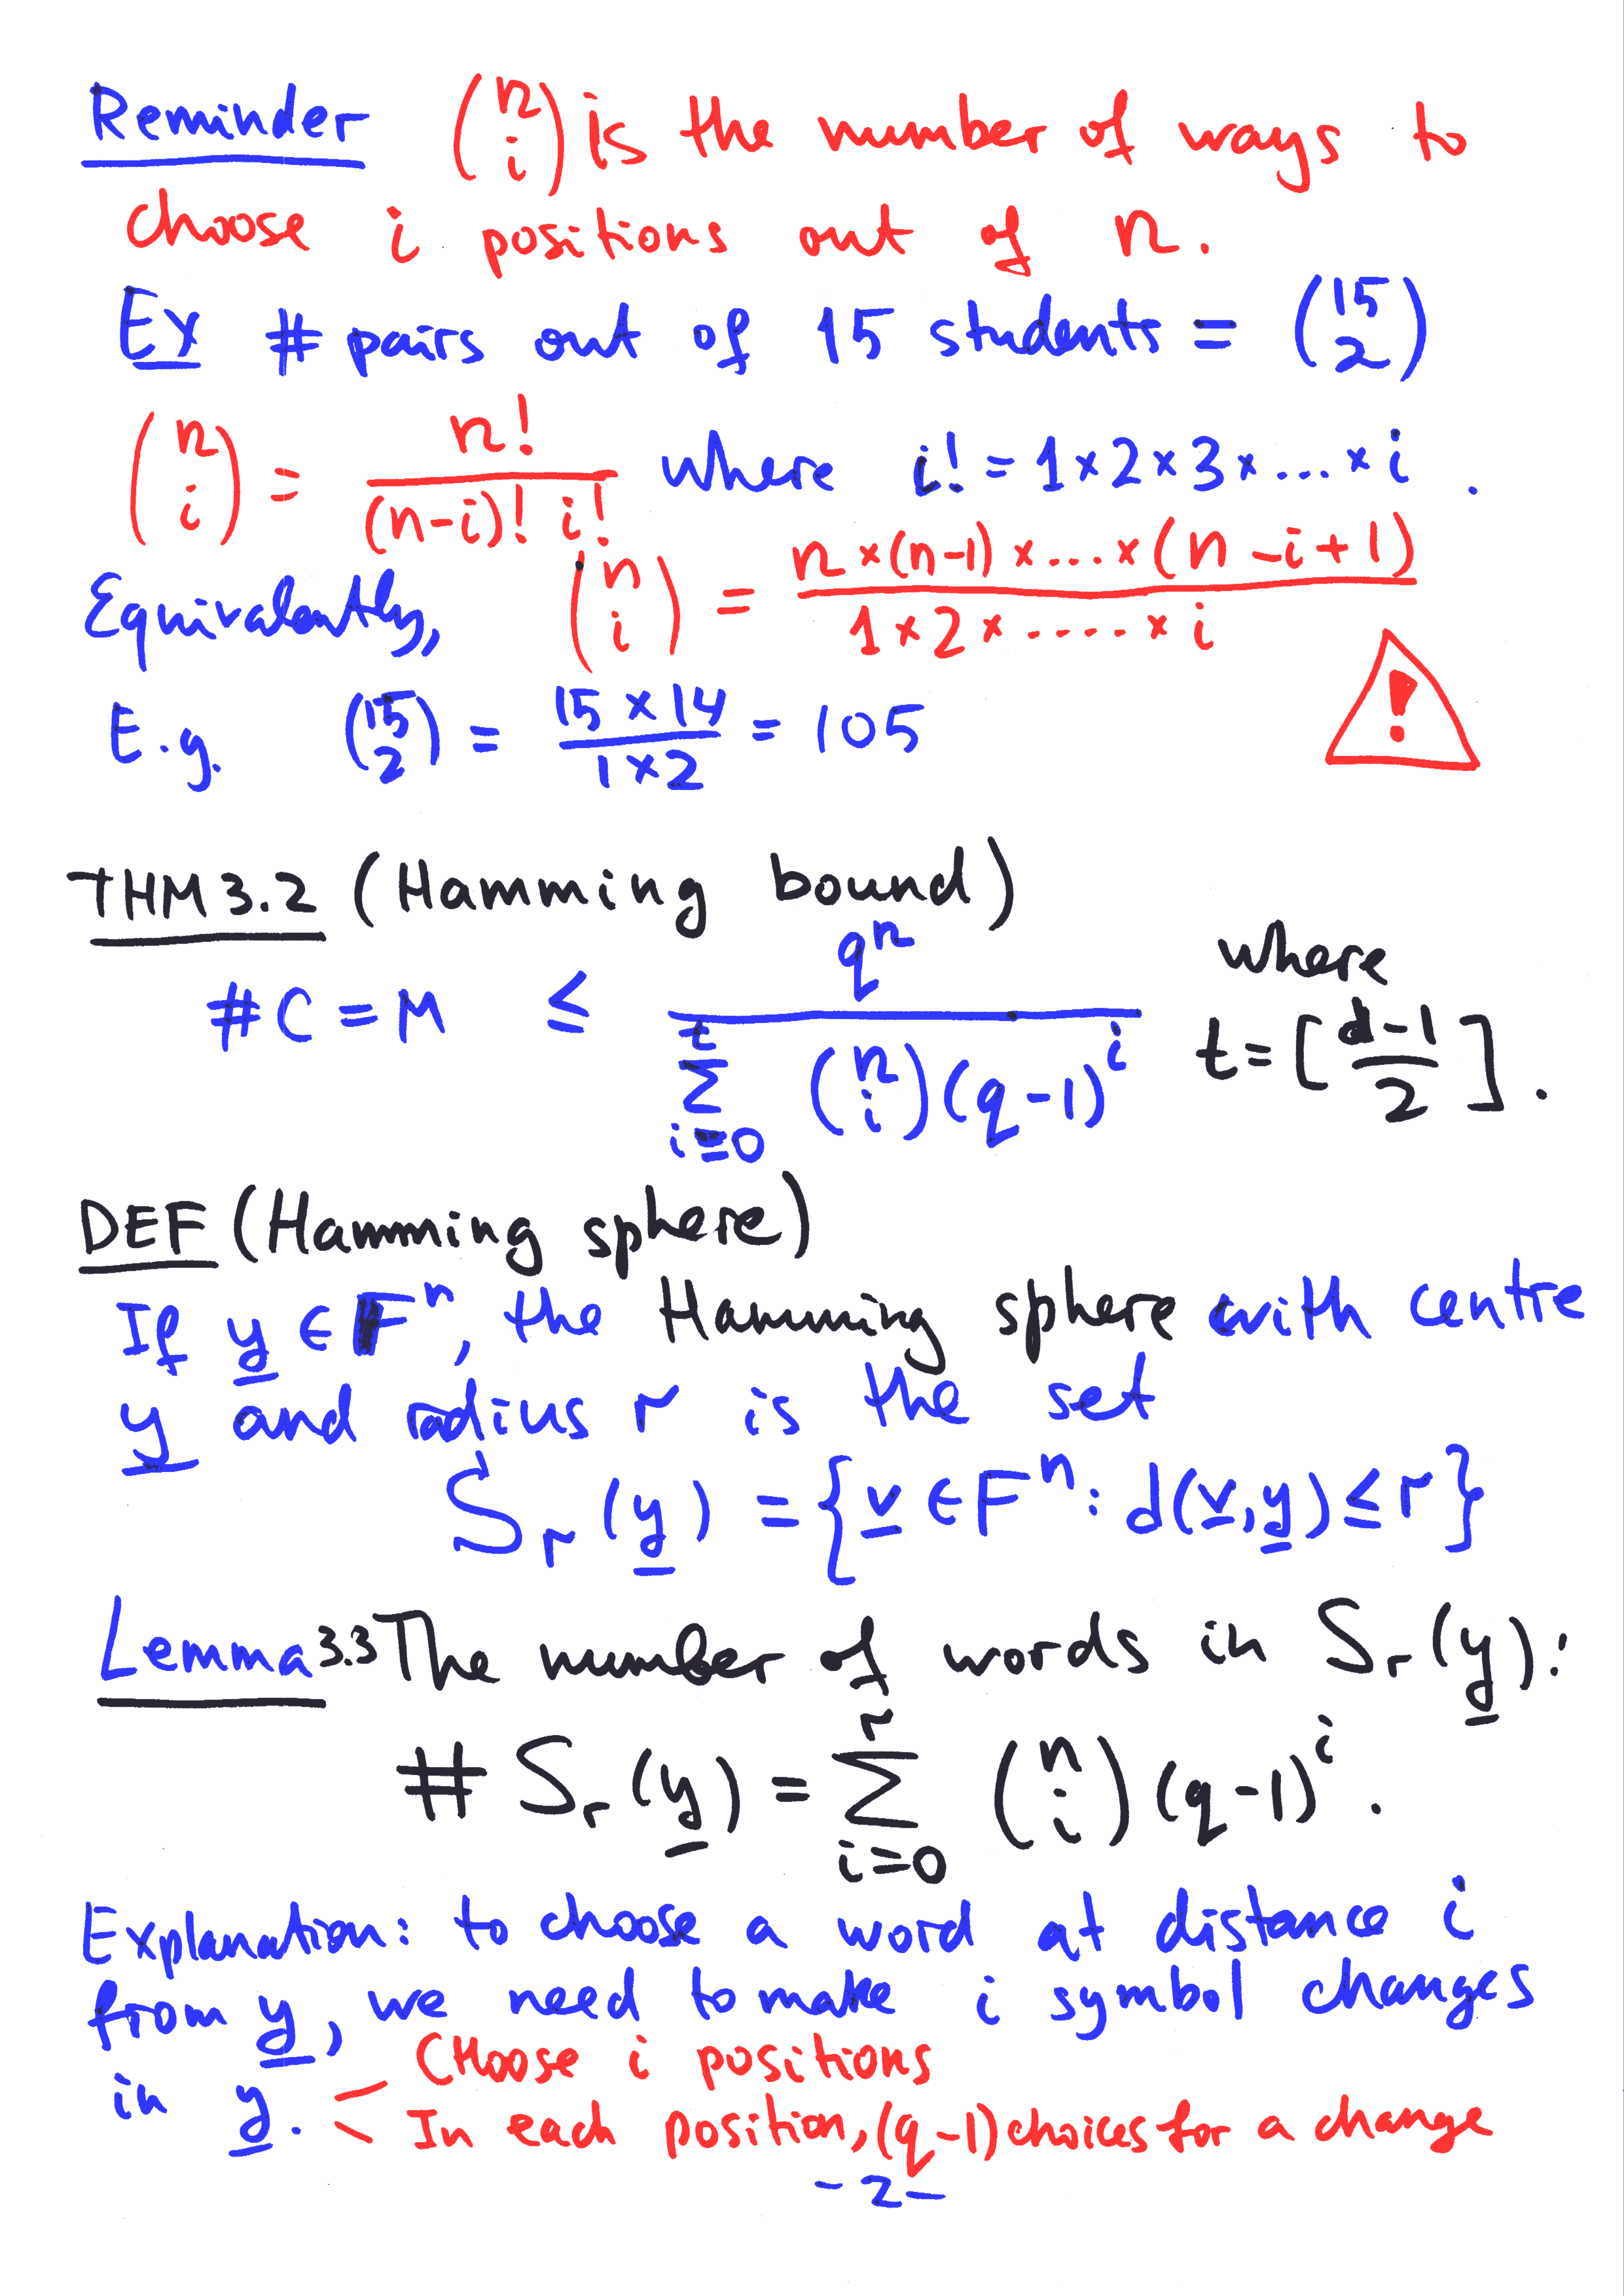 Reminder (n i) is the number of ways to
choose i positions out of n.
Ex # pairs out of 15 students = (15 2)
(n i) = n! / (n-i)! i! where i! = 1×2×3×...×i .
Equivalently, (n i) = n×(n-1)×...×(n-i+1) / 1×2×.....×i
E.g. (15 2) = 15×14 / 1×2 = 105
!
THM 3.2 (Hamming bound)
#C = M ≤ qⁿ / ∑_{i=0}^{t} (n i)(q-1)^i where t = [d-1 / 2].
DEF (Hamming sphere)
If y ∈ Fⁿ, the Hamming sphere with centre
y and radius r is the set
S_r(y) = {v ∈ Fⁿ: d(v,y) ≤ r}
Lemma 3.3 The number of words in S_r(y):
# S_r(y) = ∑_{i=0}^{r} (n i)(q-1)^i .
Explanation: to choose a word at distance i
from y, we need to make i symbol changes
in y. Choose i positions
In each position, (q-1) choices for a change
- 2 -